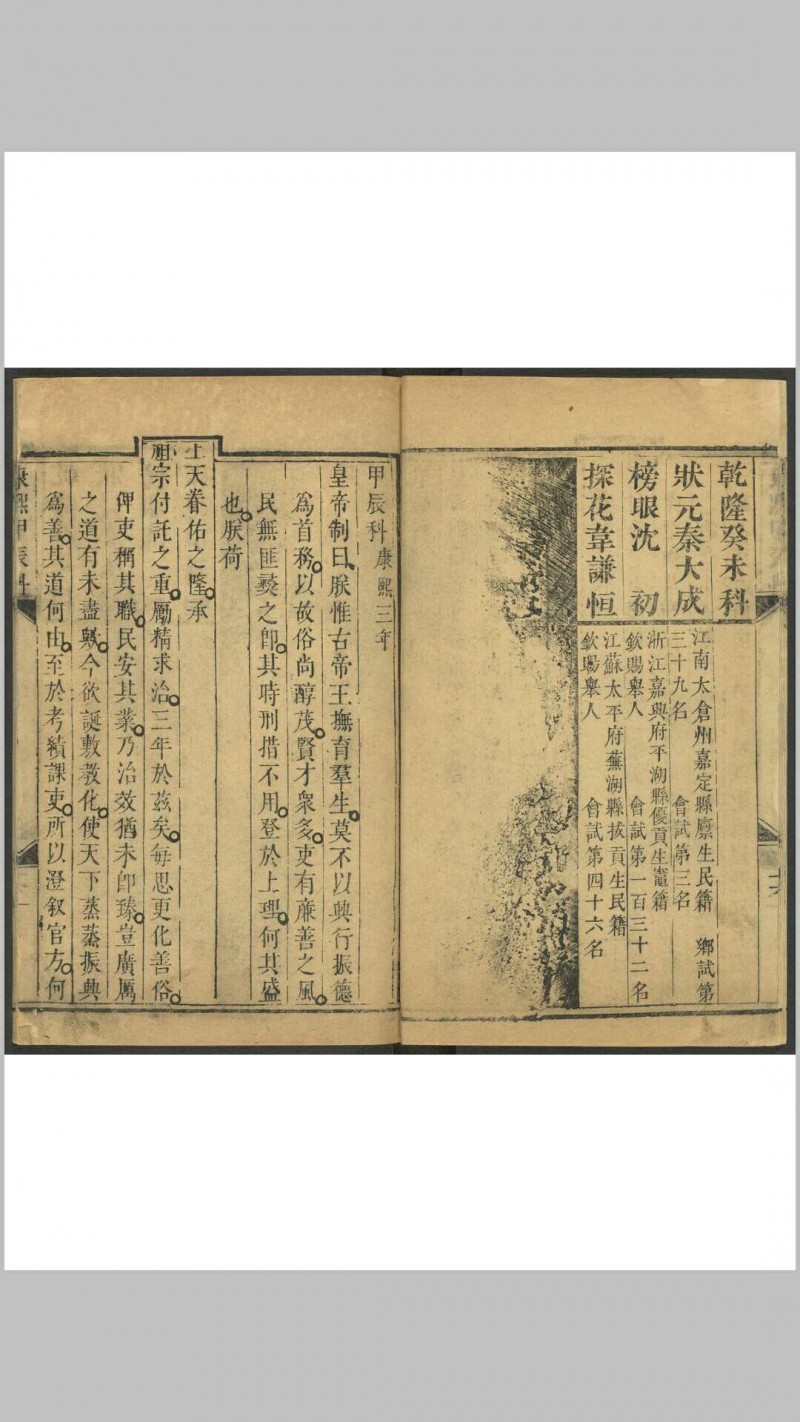 乾隆癸未科
狀元秦大成
江南太倉州嘉定縣廪生民籍 鄉試第
三十九名 會試第三名
榜眼沈 初
浙江嘉興府平湖縣優貢生竈籍
欽賜舉人 會試第一百三十二名
探花韋謙恒
江蘇太平府蕪湖縣拔貢生民籍
欽賜舉人 會試第四十六名
甲辰科康熙三年
皇帝制曰朕惟古帝王撫育羣生莫不以興行振德
爲首務以故俗尚醇茂賢才衆多吏有廉善之風
民無匪彝之卽其時刑措不用登於上理何其盛
也朕荷
上天眷佑之隆承
祖宗付託之重勵精求治三年於茲矣每思更化善俗
俾吏稱其職民安其業乃治效猶未卽臻豈廣厲
之道有未盡歟今欲誕敷教化使天下蒸蒸振興
爲善其道何由至於考績課吏所以澄叙官方何
康熙甲辰科
一